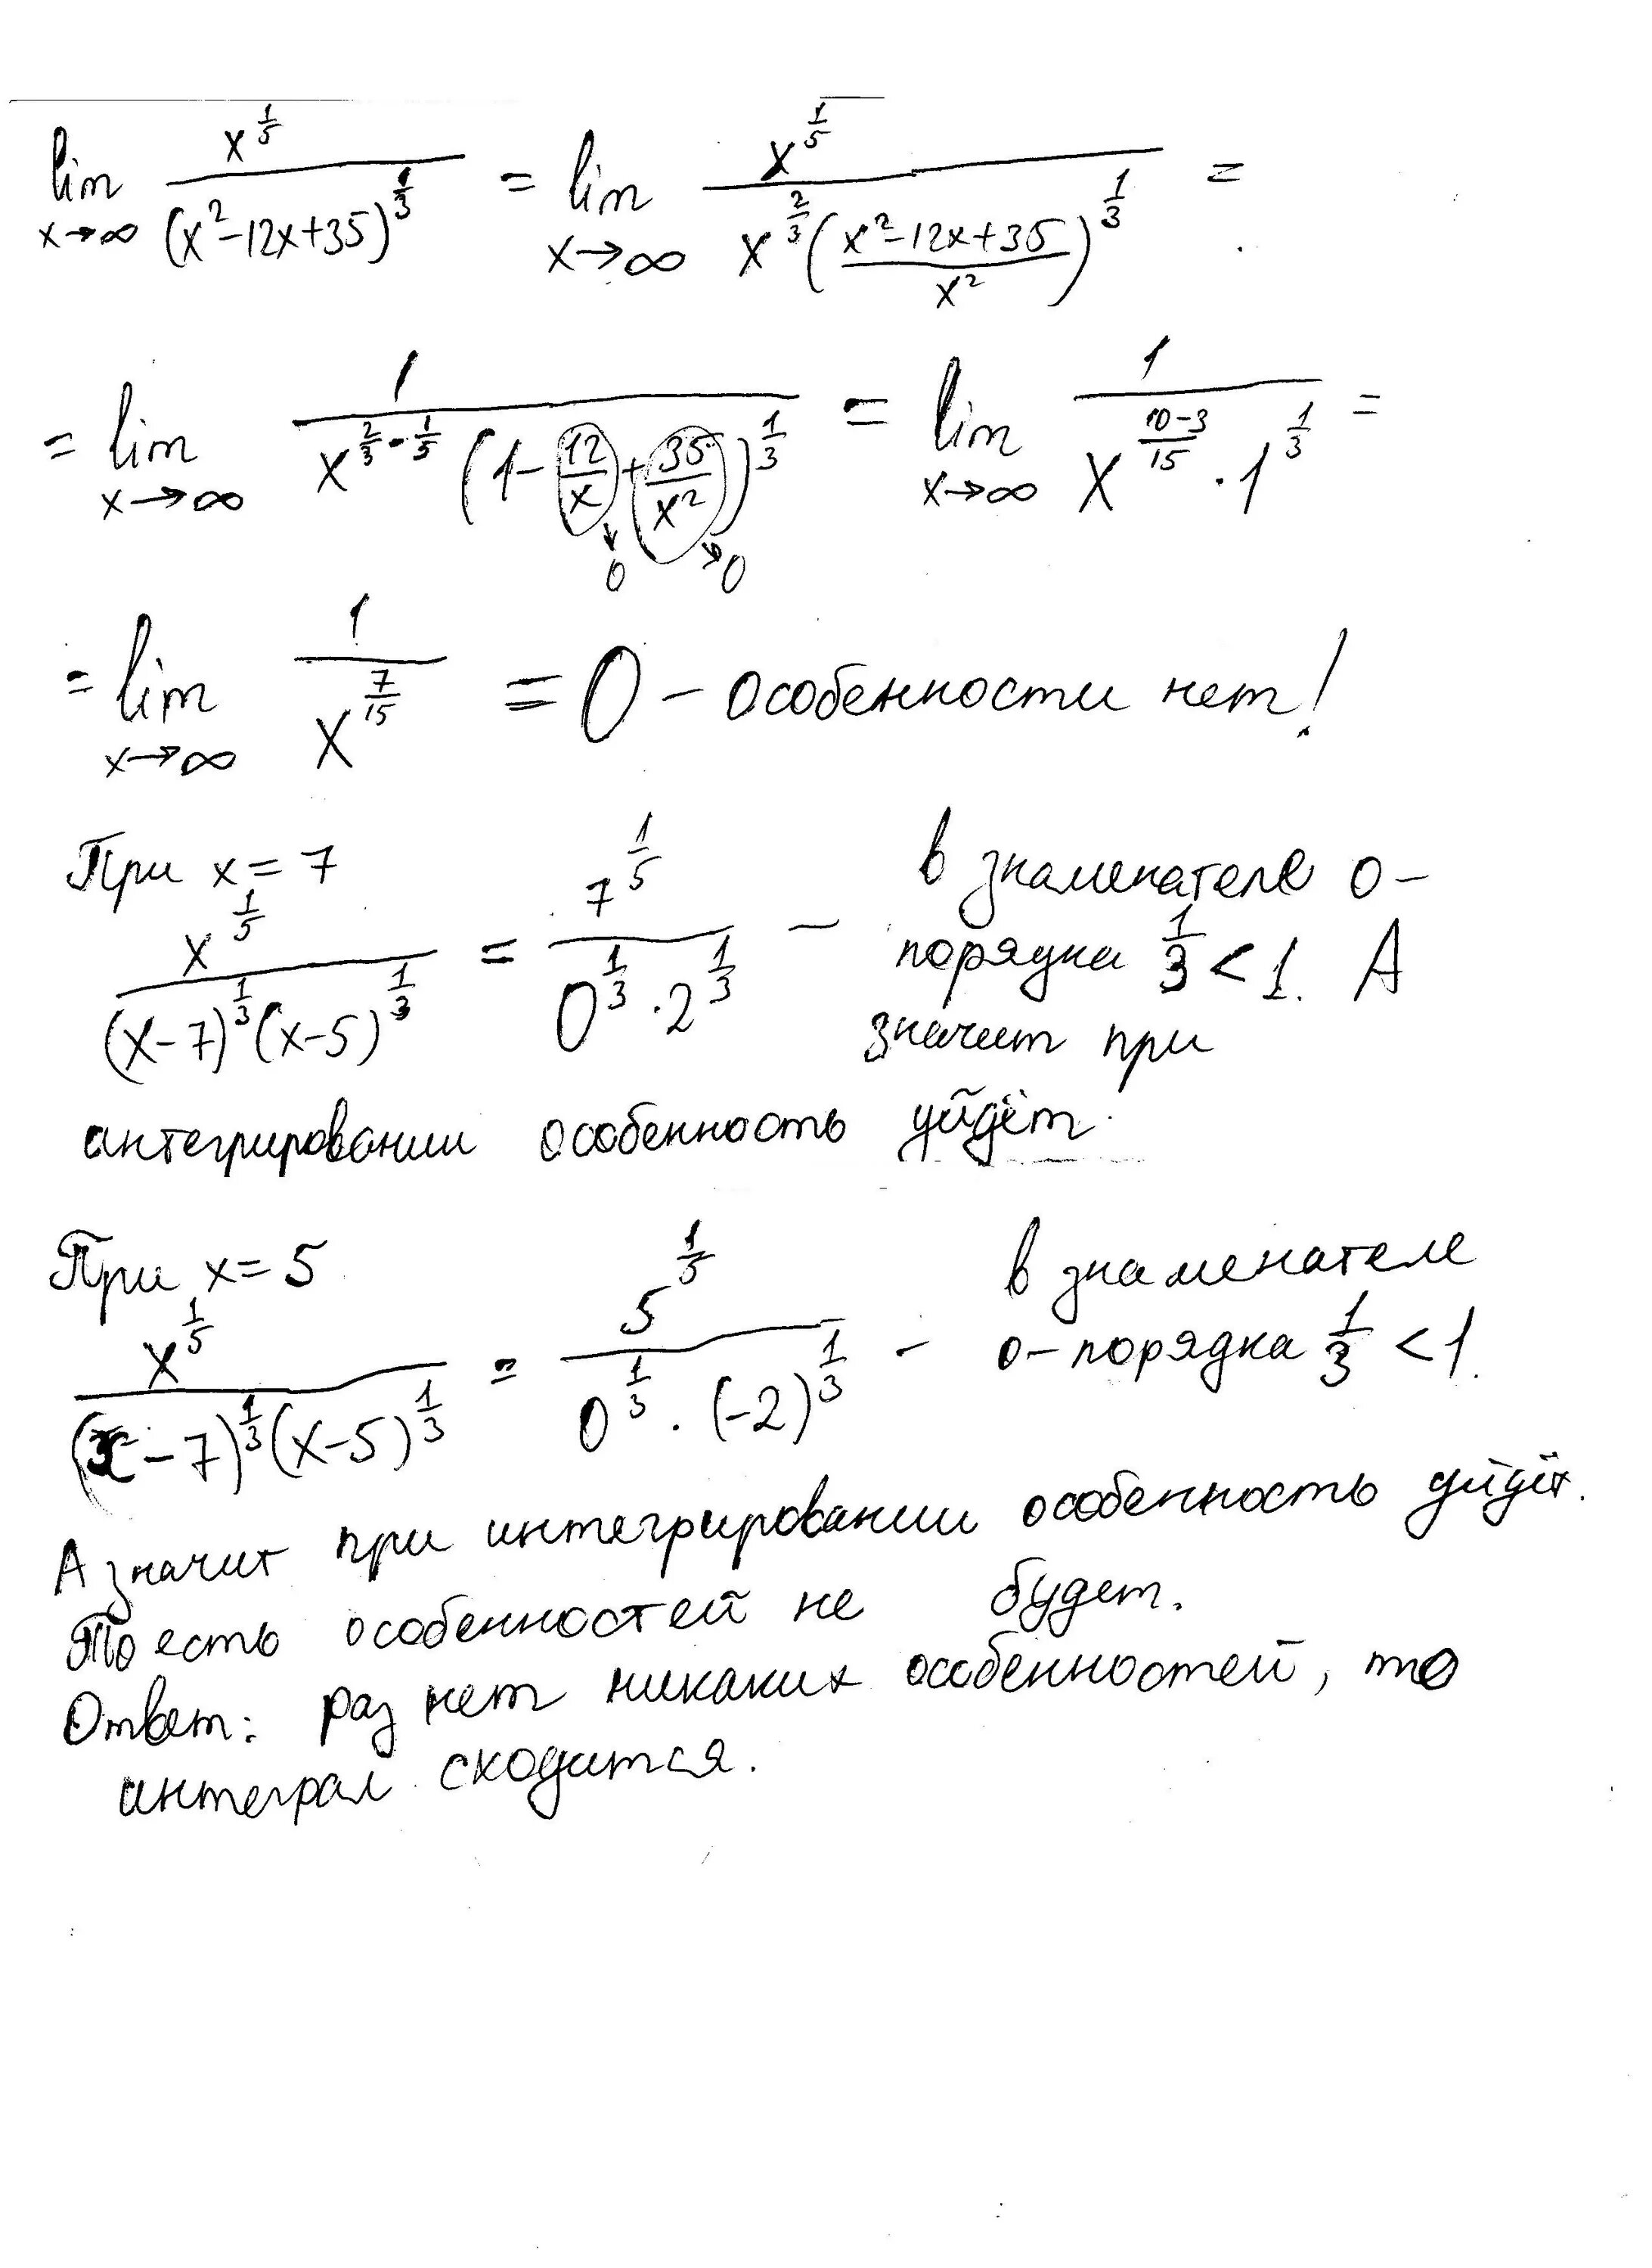 lim x→∞ x^(1/5) / (x²-12x+35)^(1/3) = lim x→∞ x^(1/5) / (x^(2/3) ((x²-12x+35)/x²)^(1/3)) =
= lim x→∞ 1 / (x^(2/3-1/5) (1-12/x+35/x²)^(1/3)) = lim x→∞ 1 / (x^((10-3)/15) · 1^(1/3)) =
↓0 ↘0
= lim x→∞ 1 / x^(7/15) = 0 - особенности нет!
При x=7
x^(1/5) / ((x-7)^(1/3) (x-5)^(1/3)) = 7^(1/5) / (0^(1/3) · 2^(1/3)) - в знаменателе 0-
порядка 1/3 < 1. А
значит при
интегрировании особенность уйдёт.
При x=5
x^(1/5) / ((x-7)^(1/3) (x-5)^(1/3)) = 5^(1/5) / (0^(1/3) · (-2)^(1/3)) - в знаменателе
0-порядка 1/3 < 1.
А значит при интегрировании особенность уйдёт.
То есть особенностей не будет.
Ответ: раз нет никаких особенностей, то
интеграл сходится.